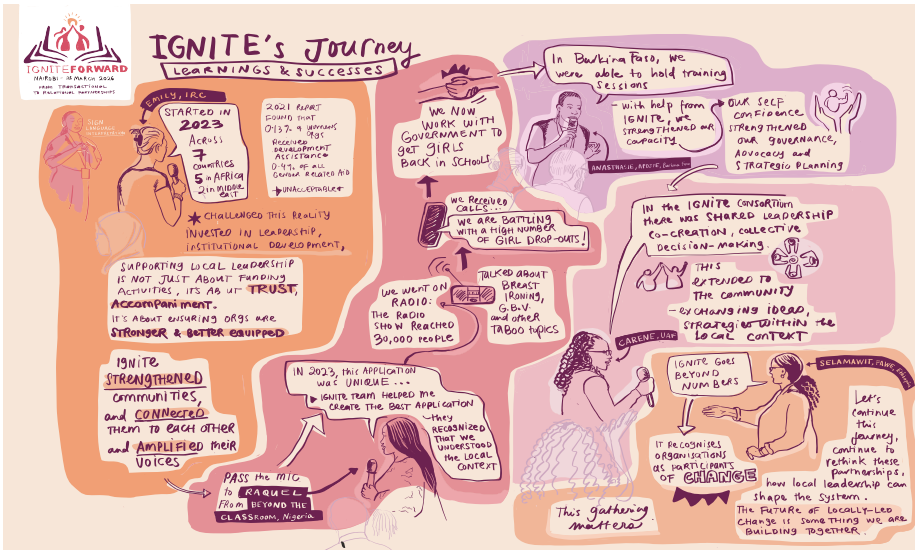 IGNITEFORWARD
NAIROBI - 25 MARCH 2026
FROM TRANSACTIONAL
TO RELATIONAL PARTNERSHIPS
IGNITE's Journey
LEARNINGS & SUCCESSES
SIGN
LANGUAGE
INTERPRETATION
EMILY, IRC
STARTED IN
2023
ACROSS
7
COUNTRIES
5 in AFRICA
2 in MIDDLE
EAST
2021 REPORT
FOUND THAT
0.13% of WOMENS
ORGS
RECEIVED
DEVELOPMENT
ASSISTANCE
0.4% OF ALL
GENDER RELATED AID
UNACCEPTABLE
CHALLENGED THIS REALITY
INVESTED IN LEADERSHIP,
INSTITUTIONAL DEVELOPMENT,
SUPPORTING LOCAL LEADERSHIP
IS NOT JUST ABOUT FUNDING
ACTIVITIES, IT'S AB UT TRUST,
ACCOMPANIMENT.
IT'S ABOUT ENSURING ORGS ARE
STRONGER & BETTER EQUIPPED
IGNITE
STRENGTHENED
communities,
and CONNECTED
THEM TO EACH OTHER
and AMPLIFIED their
VOICES
PASS the MIC
to RAQUEL
FROM BEYOND THE
CLASSROOM, Nigeria
IN 2023, this APPLICATION
was UNIQUE ...
IGNITE TEAM HELPED ME
CREATE THE BEST APPLICATION
- they
RECOGNIZED
THAT WE
UNDERSTOOD
THE LOCAL
CONTEXT
WE WENT ON
RADIO:
THE RADIO
SHOW REACHED
30,000 PEOPLE
TALKED ABOUT
BREAST
IRONING,
G.B.V.
and other
TABOO TOPICS
WE RECEIVED
CALLS...
WE ARE BATTLING
WITH A HIGH NUMBER
OF GIRL DROP-OUTS!
WE NOW
WORK WITH
GOVERNMENT TO
GET GIRLS
BACK IN SCHOOLS.
In Burkina Faso, we
were able to hold training
sessions
- with help from
IGNITE, we
STRENGTHENED OUR
CAPACITY
OUR SELF
CONFIDENCE
STRENGTHENED
OUR GOVERNANCE,
ADVOCACY and
STRATEGIC PLANNING
IN THE IGNITE CONSORTIUM
there was SHARED LEADERSHIP
CO-CREATION, COLLECTIVE
DECISION-MAKING.
THIS
EXTENDED TO
THE COMMUNITY
- EXCHANGING IDEAS,
STRATEGIES WITHIN the
LOCAL CONTEXT
CARENE, UAF
IGNITE GOES
BEYOND
NUMBERS
SELAMAWIT, FAWE, Ethiopia
IT RECOGNISES
ORGANISATIONS
AS PARTICIPANTS
OF CHANGE
This gathering
matters
Let's
continue
this
journey,
continue to
rethink these
partnerships,
how local leadership can
shape the system.
THE FUTURE OF LOCALLY-LED
CHANGE IS SOMETHING WE ARE
BUILDING TOGETHER.